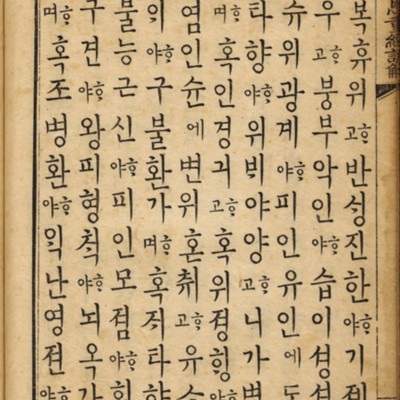 重經諺解
복휴위ᄒᆞ고반싱진한ᄒᆞ야기젼
우ᄒᆞ고붕부악인ᄒᆞ야습이셩
슈위광계ᄒᆞ야피인유인에도
타향ᄒᆞ야위빅야양ᄒᆞ고니가변
ᄒᆞ고혹인경거ᄒᆞ고혹위졍힝ᄒᆞ야
염인슌에변위혼취ᄒᆞ고유소
의ᄒᆞ야구불환가ᄒᆞ며혹지타향
불능근신ᄒᆞ야피인모졈ᄒᆞ야힝
구견ᄒᆞ야왕피형칙ᄒᆞ야뇌옥가
ᄒᆞ며혹조병환ᄒᆞ야익난영젼ᄒᆞ야